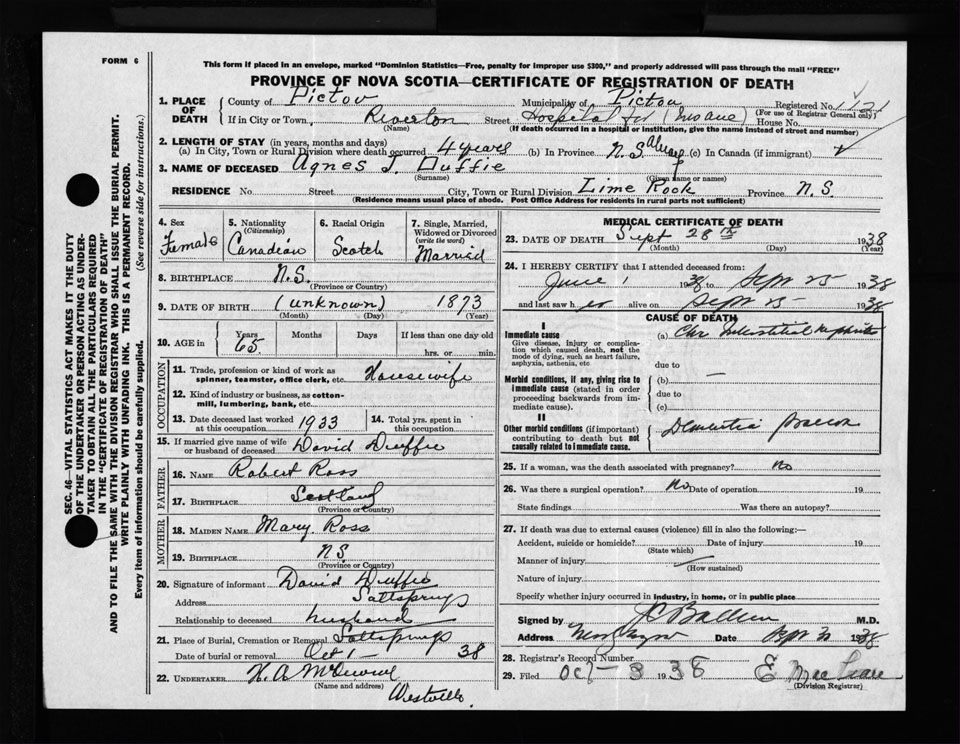 FORM 6
This form if placed in an envelope, marked "Dominion Statistics—Free, penalty for improper use $300," and properly addressed will pass through the mail "FREE"
PROVINCE OF NOVA SCOTIA—CERTIFICATE OF REGISTRATION OF DEATH
1. PLACE OF DEATH
County of Pictou Municipality of Pictou Registered No.
(For use of Registrar General only)
If in City or Town, Riverton Street Hospital for Insane House No.
(Name) (If death occurred in a hospital or institution, give the name instead of street and number)
2. LENGTH OF STAY (in years, months and days)
(a) In City, Town or Rural Division where death occurred 4 years (b) In Province N.S. (c) In Canada (if immigrant)
3. NAME OF DECEASED Agnes J. Duffie
(Surname) (Given name or names)
RESIDENCE No. Street City, Town or Rural Division Lime Rock Province N.S.
(Residence means usual place of abode. Post Office Address for residents in rural parts not sufficient)
4. Sex Female
5. Nationality (Citizenship) Canadian
6. Racial Origin Scotch
7. Single, Married, Widowed or Divorced (write the word) Married
8. BIRTHPLACE N.S.
(Province or Country)
9. DATE OF BIRTH (unknown) 1873
(Month) (Day) (Year)
10. AGE in Years 65 Months Days If less than one day old
hrs. or min.
OCCUPATION
11. Trade, profession or kind of work as spinner, teamster, office clerk, etc. Housewife
12. Kind of industry or business, as cotton-mill, lumbering, bank, etc.
13. Date deceased last worked at this occupation 1933
14. Total yrs. spent in this occupation
15. If married give name of wife or husband of deceased David Duffie
FATHER
16. NAME Robert Ross
17. BIRTHPLACE Scotland
(Province or Country)
MOTHER
18. MAIDEN NAME Mary Ross
19. BIRTHPLACE N.S.
(Province or Country)
20. Signature of informant David Duffie
Address Saltsprings
Relationship to deceased husband
21. Place of Burial, Cremation or Removal Saltsprings
Date of burial or removal Oct 1 — 38
22. UNDERTAKER H. A.
(Name and address)
Westville
MEDICAL CERTIFICATE OF DEATH
23. DATE OF DEATH Sept 28th 1938
(Month) (Day) (Year)
24. I HEREBY CERTIFY that I attended deceased from:
June 1 1938 to Sept 25 1938
and last saw her alive on Sept 25 1938
CAUSE OF DEATH
I
Immediate cause
Give disease, injury or complication which caused death, not the mode of dying, such as heart failure, asphyxia, asthenia, etc
(a) Chr Interstitial Nephritis
due to
Morbid conditions, if any, giving rise to immediate cause (stated in order proceeding backwards from immediate cause).
(b) —
due to
(c)
II
Other morbid conditions (if important) contributing to death but not causally related to immediate cause.
Dementia Praecox
25. If a woman, was the death associated with pregnancy? no
26. Was there a surgical operation? No Date of operation 19
State findings Was there an autopsy?
27. If death was due to external causes (violence) fill in also the following:—
Accident, suicide or homicide? Date of injury 19
(State which)
Manner of injury
(How sustained)
Nature of injury
Specify whether injury occurred in industry, in home, or in public place
Signed by M.D.
Address Date Sept 1938
28. Registrar's Record Number
29. Filed Oct - 3 1938
(Division Registrar)
SEC. 46—VITAL STATISTICS ACT MAKES IT THE DUTY
OF THE UNDERTAKER OR PERSON ACTING AS UNDER-
TAKER TO OBTAIN ALL THE PARTICULARS REQUIRED
IN THE "CERTIFICATE OF REGISTRATION OF DEATH"
AND TO FILE THE SAME WITH THE DIVISION REGISTRAR WHO SHALL ISSUE THE BURIAL PERMIT.
WRITE PLAINLY WITH UNFADING INK. THIS IS A PERMANENT RECORD.
Every item of information should be carefully supplied. (See reverse side for instructions.)